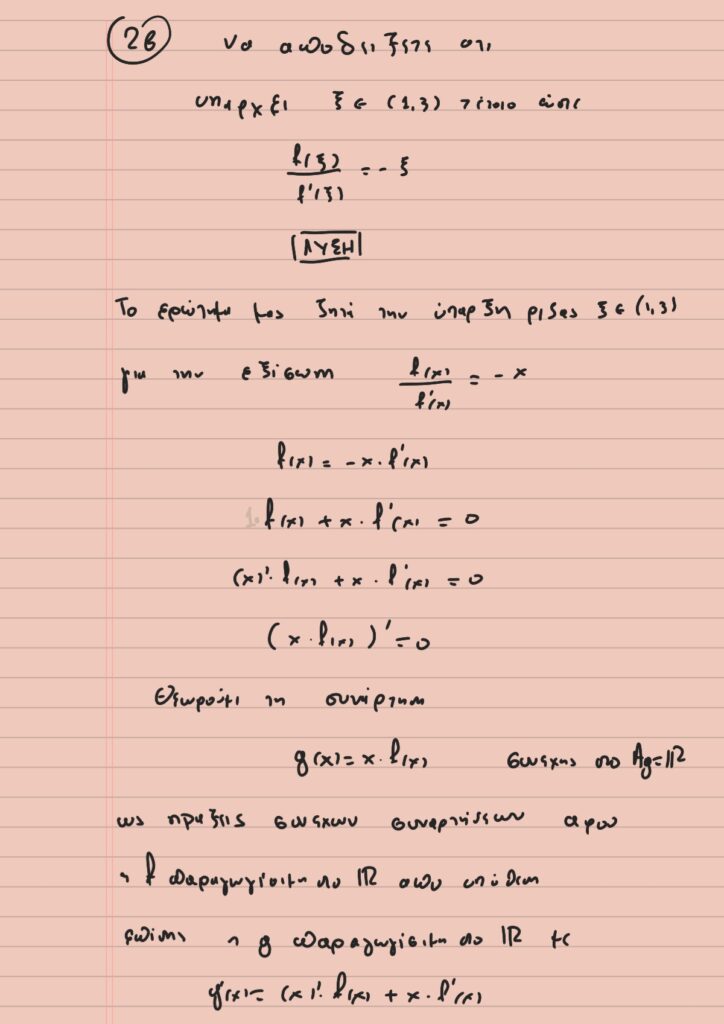 2β να αποδειξετε οτι
υπαρχει ξ ∈ (1,3) τέτοιο ώστε
f(ξ) / f'(ξ) = - ξ
ΛΥΣΗ
Το ερώτημα μας ζητά την ύπαρξη ριζας ξ ∈ (1,3)
για την εξίσωση f(x) / f'(x) = - x
f(x) = -x · f'(x)
1· f(x) + x · f'(x) = 0
(x)' · f(x) + x · f'(x) = 0
( x · f(x) )' = 0
Θεωρούμε τη συνάρτηση
g(x) = x · f(x) συνεχης στο Ag = ℝ
ως πραξεις συνεχων συναρτήσεων αφου
η f παραγωγίσιμη στο ℝ απο υπόθεση
επίσης η g παραγωγίσιμη στο ℝ με
g'(x) = (x)' · f(x) + x · f'(x)